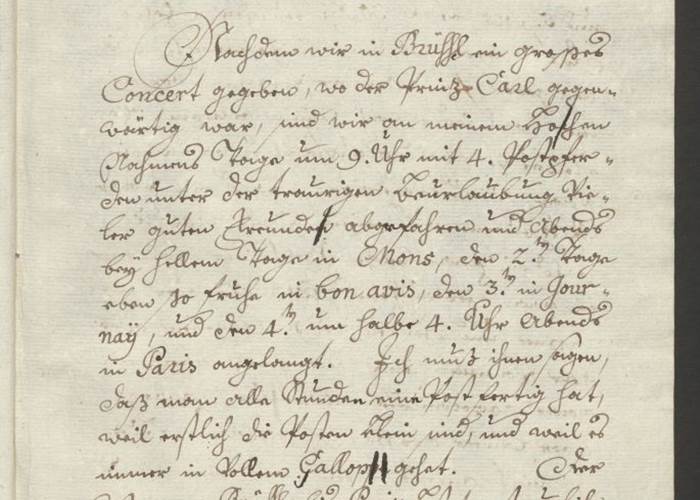 Nachdem wir in Brüssl ein grosses
Concert gegeben, wo der Prinz Carl gegen-
wärtig war, sind wir an meinem Hohen
Nahmens Tage um 9. Uhr mit 4. Postpfer-
den unter der traurigen beurlaubung vie-
ler guten Freunden abgefahren und Abends
bey hellem Tage in Mons, den 2.ᵗᵉⁿ Tage
eben so frühe in bon avis, den 3.ᵗᵉⁿ in Gour-
nay, und den 4.ᵗᵉⁿ um halbe 4. Uhr Abends
in Paris angelangt. Ich muß ihnen sagen,
daß man alle Stunden eine Post fertig hat,
weil erstlich die Posten klein sind, und weil es
immer in Vollem Gallopp gehet. Der